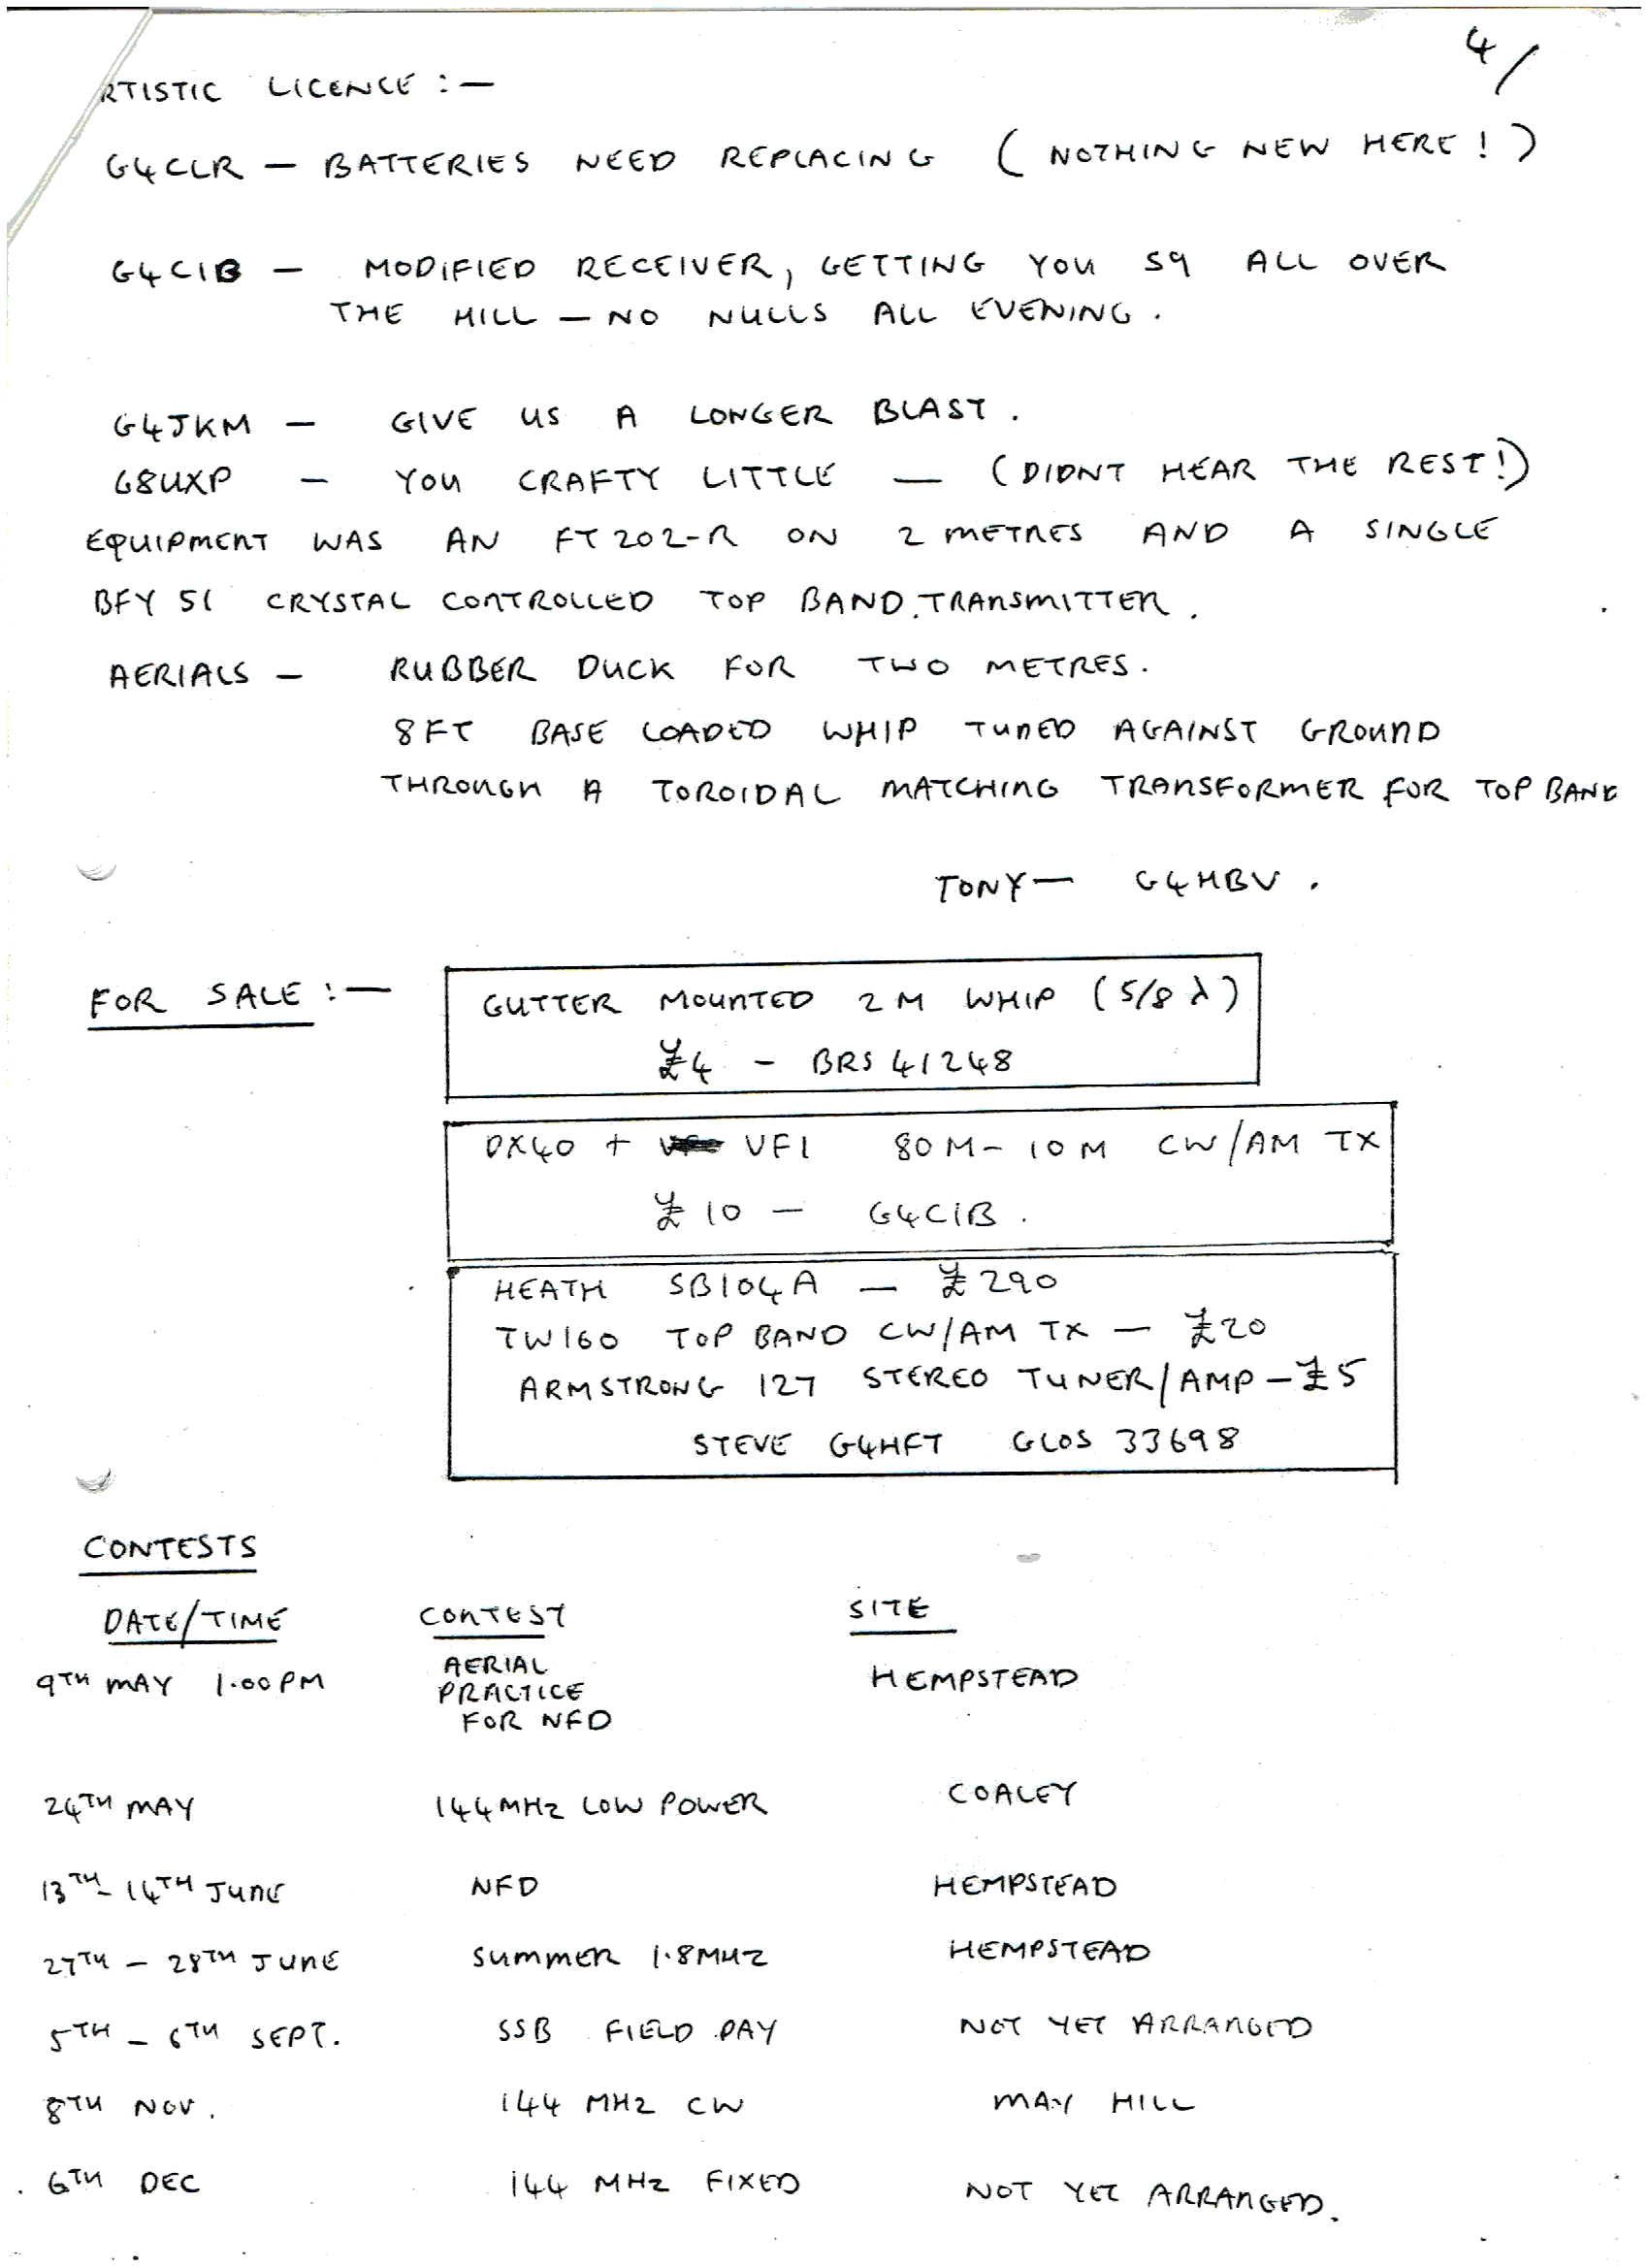 4/
RTISTIC LICENCE :—
G4CLR — BATTERIES NEED REPLACING ( NOTHING NEW HERE ! )
G4CIB — MODIFIED RECEIVER, GETTING YOU S9 ALL OVER
THE HILL — NO NULLS ALL EVENING.
G4JKM — GIVE US A LONGER BLAST.
G8UXP — YOU CRAFTY LITTLE — (DIDNT HEAR THE REST!)
EQUIPMENT WAS AN FT202-R ON 2 METRES AND A SINGLE
BFY 51 CRYSTAL CONTROLLED TOP BAND.TRANSMITTER.
AERIALS — RUBBER DUCK FOR TWO METRES.
8FT BASE LOADED WHIP TUNED AGAINST GROUND
THROUGH A TOROIDAL MATCHING TRANSFORMER FOR TOP BAND
TONY — G4HBV.
FOR SALE :—
GUTTER MOUNTED 2M WHIP (5/8 λ)
£4 - BRS 41248
DX40 + VF1 80M-10M CW/AM TX
£10 — G4CIB.
HEATH SB104A — £290
TW160 TOP BAND CW/AM TX — £20
ARMSTRONG 127 STEREO TUNER/AMP - £5
STEVE G4HFT GLOS 33698
CONTESTS
DATE/TIME CONTEST SITE
9TH MAY 1.00PM AERIAL PRACTICE FOR NFD HEMPSTEAD
24TH MAY 144MHZ LOW POWER COALEY
13TH - 14TH JUNE NFD HEMPSTEAD
27TH - 28TH JUNE SUMMER 1.8MHZ HEMPSTEAD
5TH - 6TH SEPT. SSB FIELD DAY NOT YET ARRANGED
8TH NOV. 144 MHZ CW MAY HILL
6TH DEC 144 MHZ FIXED NOT YET ARRANGED.